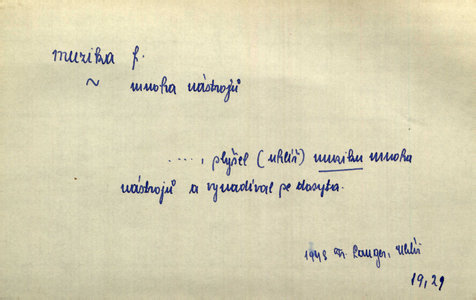 muzika f.
~ mnoha nástrojů
...., slyšel (uhlíř) muziku mnoha
nástrojů a vynadíval se dosyta.
1948 Fr. Langer, Uhlíř
19,29